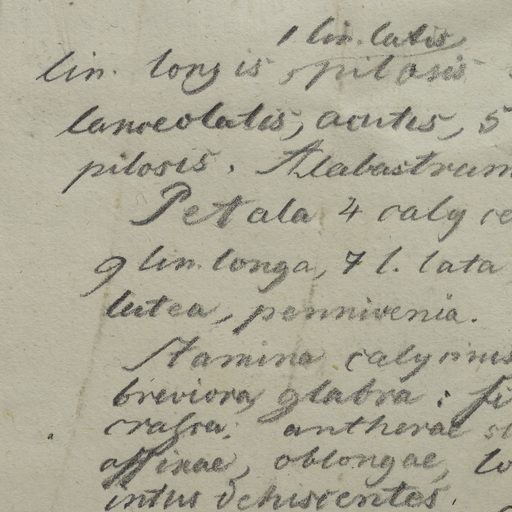 1 lin. latis
lin. longis, pilosis
lanceolatis, acutis, 5
pilosis. Alabastrum
Petala 4 calyce
9 lin. longa, 7 l. lata
lutea, pennivenia.
Stamina calycinis
breviora, glabra: fi
crassa: antherae
affixae, oblongae, lo
intus dehiscentes.